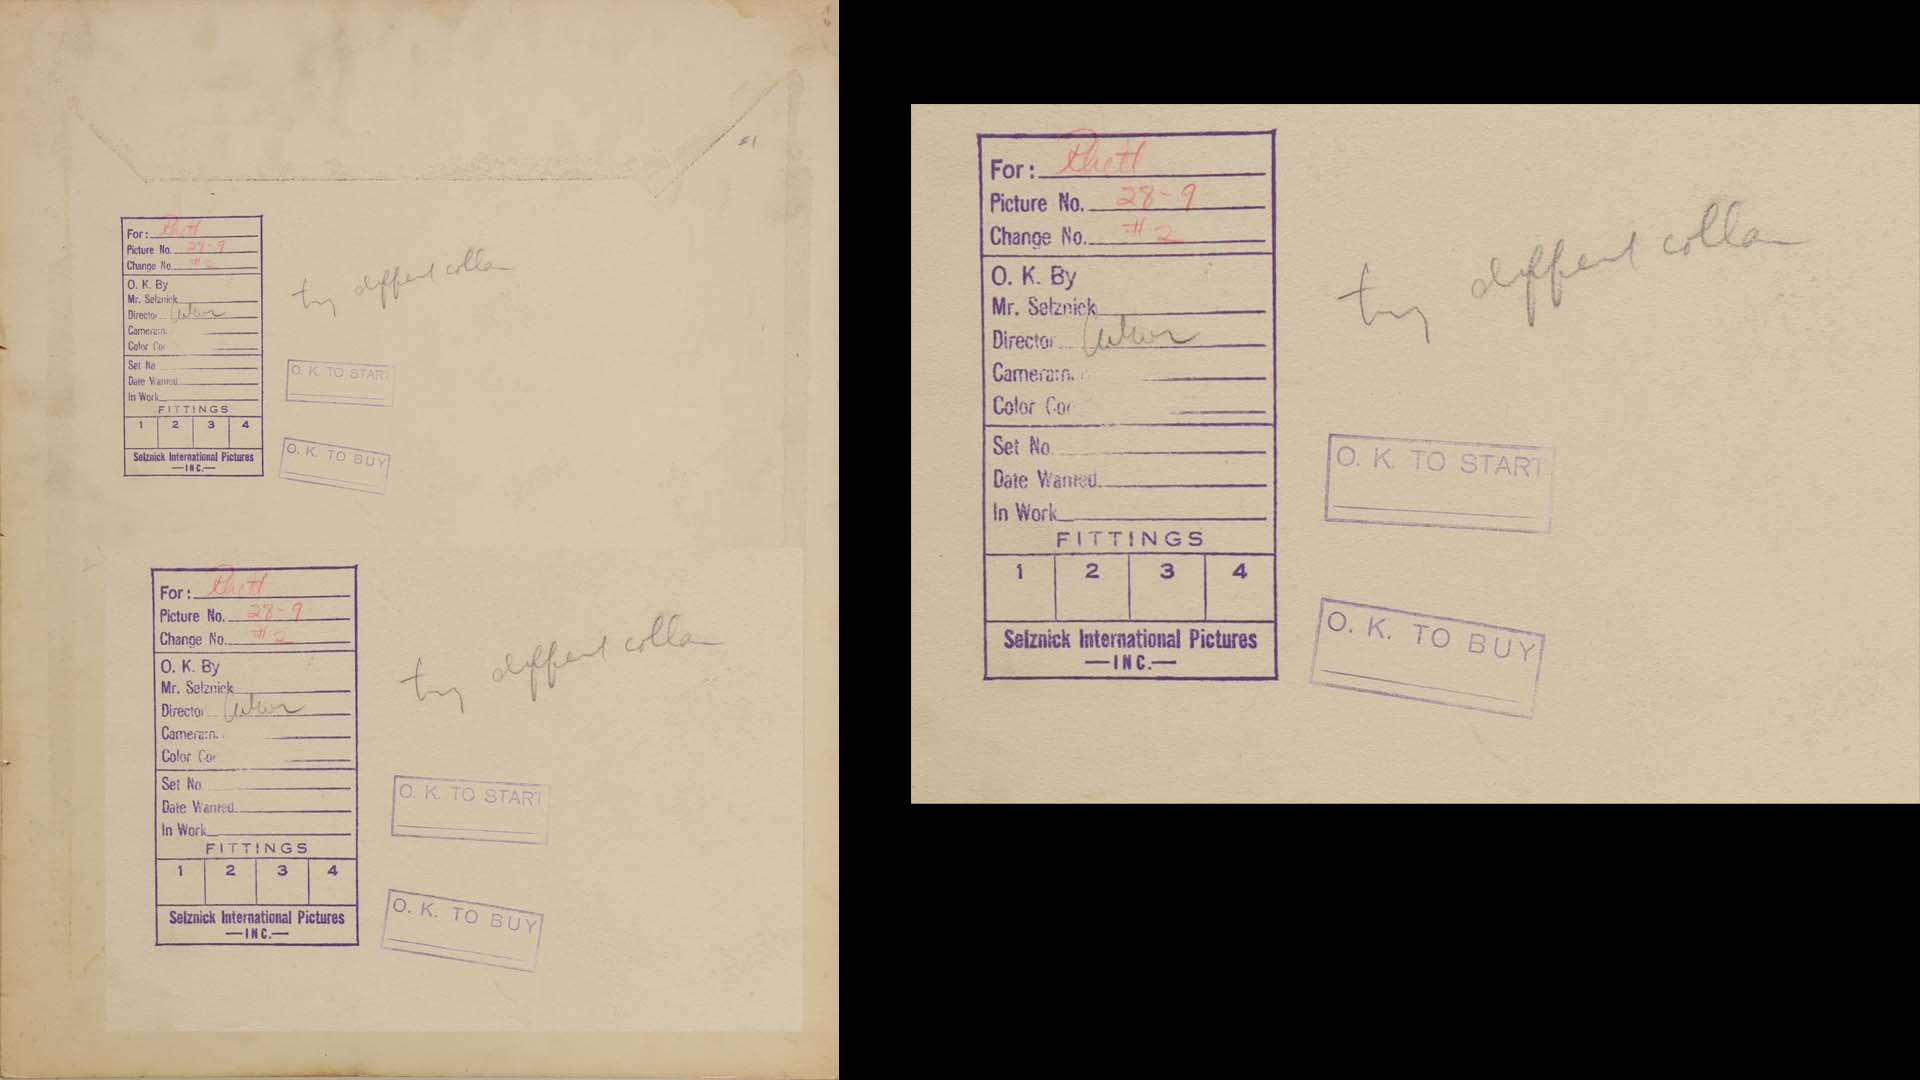 #1
For: Rhett
Picture No. 28-9
Change No. #2
O. K. By
Mr. Selznick
Director Cukor
Cameram.
Color Cor
Set No
Date Wanted
In Work
FITTINGS
1 2 3 4
Selznick International Pictures
—INC.—
try different collar
O. K. TO START
O. K. TO BUY
For: Rhett
Picture No. 28-9
Change No. #2
O. K. By
Mr. Selznick
Director Cukor
Cameram.
Color Cor
Set No
Date Wanted
In Work
FITTINGS
1 2 3 4
Selznick International Pictures
—INC.—
try different collar
O. K. TO START
O. K. TO BUY
For: Rhett
Picture No. 28-9
Change No. #2
O. K. By
Mr. Selznick
Director Cukor
Cameram.
Color Cor
Set No
Date Wanted
In Work
FITTINGS
1 2 3 4
Selznick International Pictures
—INC.—
try different collar
O. K. TO START
O. K. TO BUY